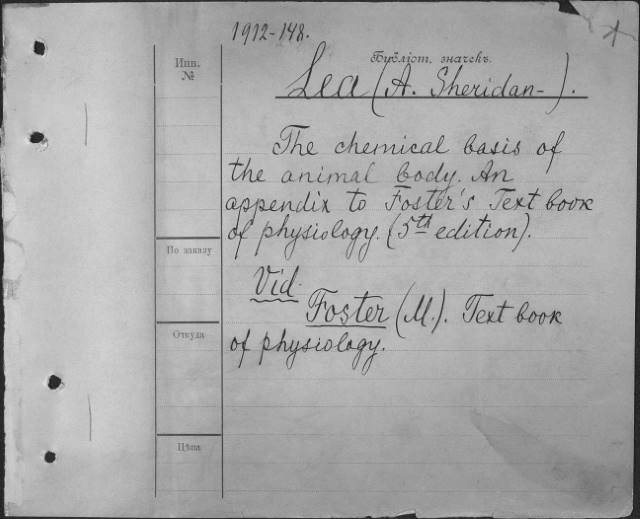 1912-148.
Инв.
№
Бубліот. значекъ.
Lea (A. Sheridan-).
The chemical basis of
the animal body. An
appendix to Foster's Text book
of physiology. (5th edition).
По заказу
Vid.
Foster (M.). Text book
Откуда
of physiology.
Цѣна